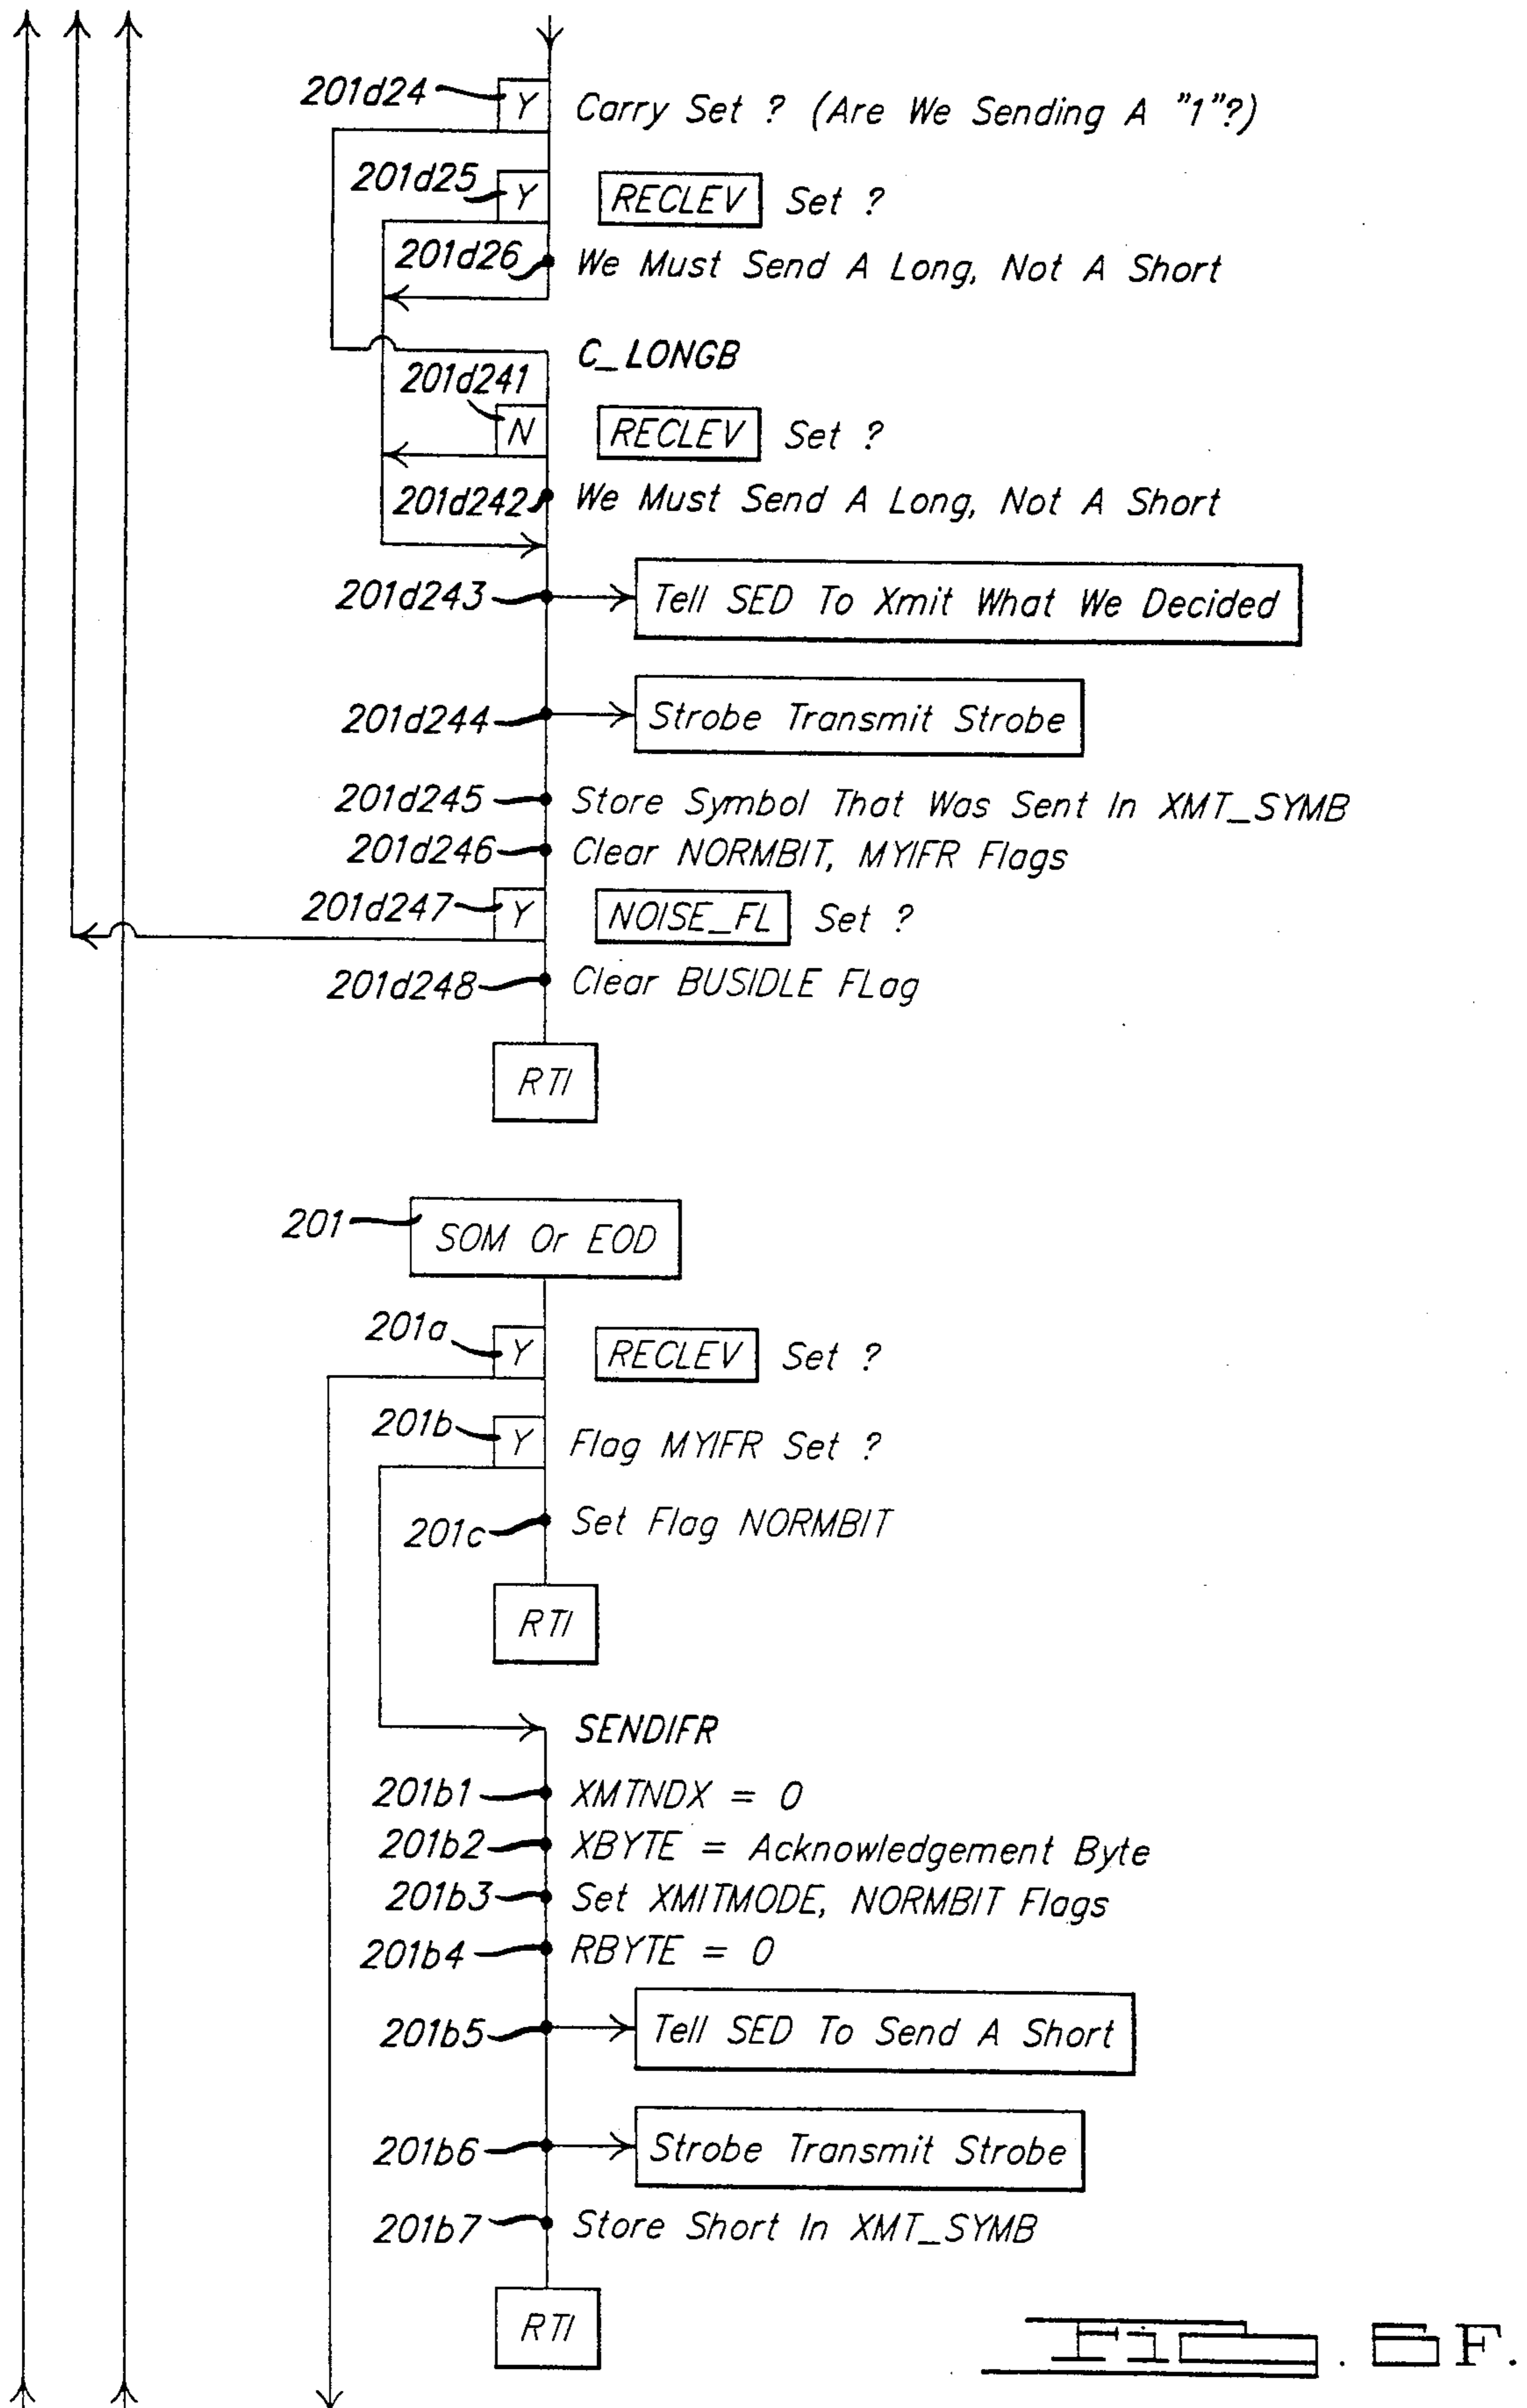 201d24 Y Carry Set ? (Are We Sending A "1"?)
201d25 Y RECLEV Set ?
201d26 We Must Send A Long, Not A Short
C_LONGB
201d241 N RECLEV Set ?
201d242 We Must Send A Long, Not A Short
201d243 Tell SED To Xmit What We Decided
201d244 Strobe Transmit Strobe
201d245 Store Symbol That Was Sent In XMT_SYMB
201d246 Clear NORMBIT, MYIFR Flags
201d247 Y NOISE_FL Set ?
201d248 Clear BUSIDLE FLag
RTI
201 SOM Or EOD
201a Y RECLEV Set ?
201b Y Flag MYIFR Set ?
201c Set Flag NORMBIT
RTI
SENDIFR
201b1 XMTNDX = 0
201b2 XBYTE = Acknowledgement Byte
201b3 Set XMITMODE, NORMBIT Flags
201b4 RBYTE = 0
201b5 Tell SED To Send A Short
201b6 Strobe Transmit Strobe
201b7 Store Short In XMT_SYMB
RTI